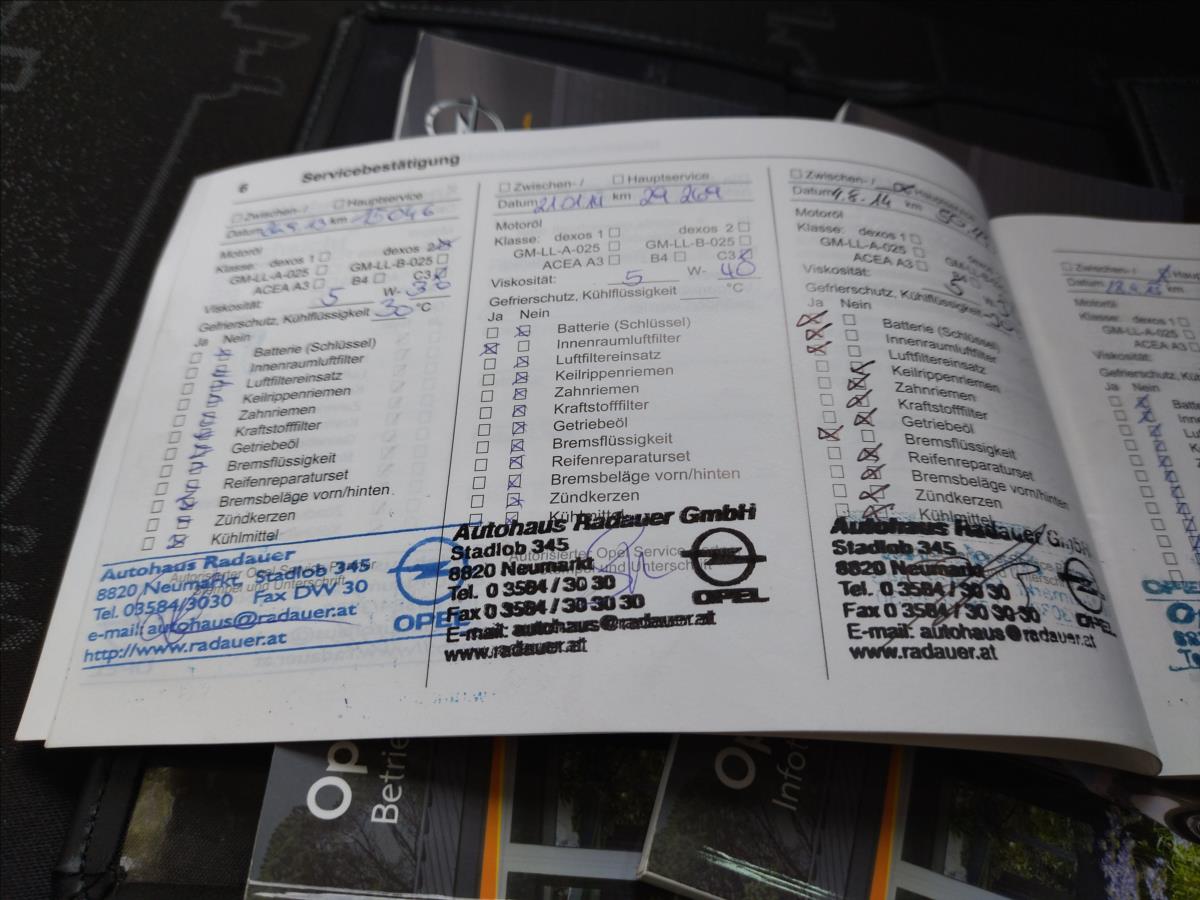 6 Servicebestätigung
Zwischen- / Hauptservice
Datum km 15046
Motoröl
Klasse: dexos 1 dexos 2
GM-LL-A-025 GM-LL-B-025
ACEA A3 B4 C3
Viskosität: 5 W- 30
Gefrierschutz, Kühlflüssigkeit 30 °C
Ja Nein
Batterie (Schlüssel)
Innenraumluftfilter
Luftfiltereinsatz
Keilrippenriemen
Zahnriemen
Kraftstofffilter
Getriebeöl
Bremsflüssigkeit
Reifenreparaturset
Bremsbeläge vorn/hinten
Zündkerzen
Kühlmittel
Autorisierter Opel Service Partner
Stempel und Unterschrift
Autohaus Radauer
8820 Neumarkt Stadlob 345
Tel. 03584/3030 Fax DW 30
e-mail: autohaus@radauer.at
http://www.radauer.at
OPEL
Zwischen- / Hauptservice
Datum 21.01.14 km 29 269
Motoröl
Klasse: dexos 1 dexos 2
GM-LL-A-025 GM-LL-B-025
ACEA A3 B4 C3
Viskosität: 5 W- 40
Gefrierschutz, Kühlflüssigkeit °C
Ja Nein
Batterie (Schlüssel)
Innenraumluftfilter
Luftfiltereinsatz
Keilrippenriemen
Zahnriemen
Kraftstofffilter
Getriebeöl
Bremsflüssigkeit
Reifenreparaturset
Bremsbeläge vorn/hinten
Zündkerzen
Kühlmittel
Autorisierter Opel Service
und Unterschrift
Autohaus Radauer GmbH
Stadlob 345
8820 Neumarkt
Tel. 0 3584 / 30 30
Fax 0 3584 / 30 30 30
E-mail: autohaus@radauer.at
www.radauer.at
OPEL
Zwischen- /
Datum 4.8.14 km
Motoröl
Klasse: dexos 1
GM-LL-A-025
ACEA A3 B4
Viskosität: 5 W-
Gefrierschutz, Kühlflüssigkeit
Ja Nein
Batterie (Schlüssel)
Innenraumluftfilter
Luftfiltereinsatz
Keilrippenriemen
Zahnriemen
Kraftstofffilter
Getriebeöl
Bremsflüssigkeit
Reifenreparaturset
Bremsbeläge vorn/hinten
Zündkerzen
Kühlmittel
Autohaus Radauer GmbH
Stadlob 345
8820 Neumarkt
Tel. 0 3584 / 30 30
Fax 0 3584 / 30 30 30
E-mail: autohaus@radauer.at
www.radauer.at
OPEL
Zwischen- /
Datum km
Motoröl
Klasse:
GM-LL-A-025
ACEA A3
Viskosität:
Gefrierschutz, Kühl
Ja Nein
Op
Betrie
Op
Info